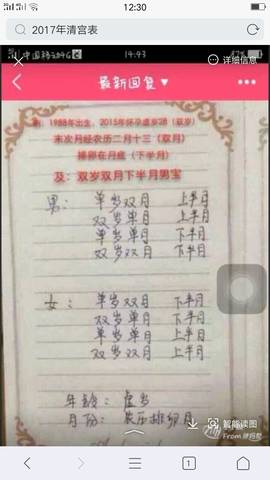 12:30
2017年清宫表
14:43
详细信息
最新回复
例：1988年出生，2015年怀孕虚岁28（双岁）
末次月经农历二月十三（双月）
排卵在月底（下半月）
及：双岁双月下半月男宝
男： 单岁双月 上半月
双岁单月 上半月
单岁单月 下半月
双岁双月 下半月
女： 单岁双月 下半月
双岁单月 下半月
单岁单月 上半月
双岁双月 上半月
年龄：虚岁
月份：农历排卵月
智能读图
1